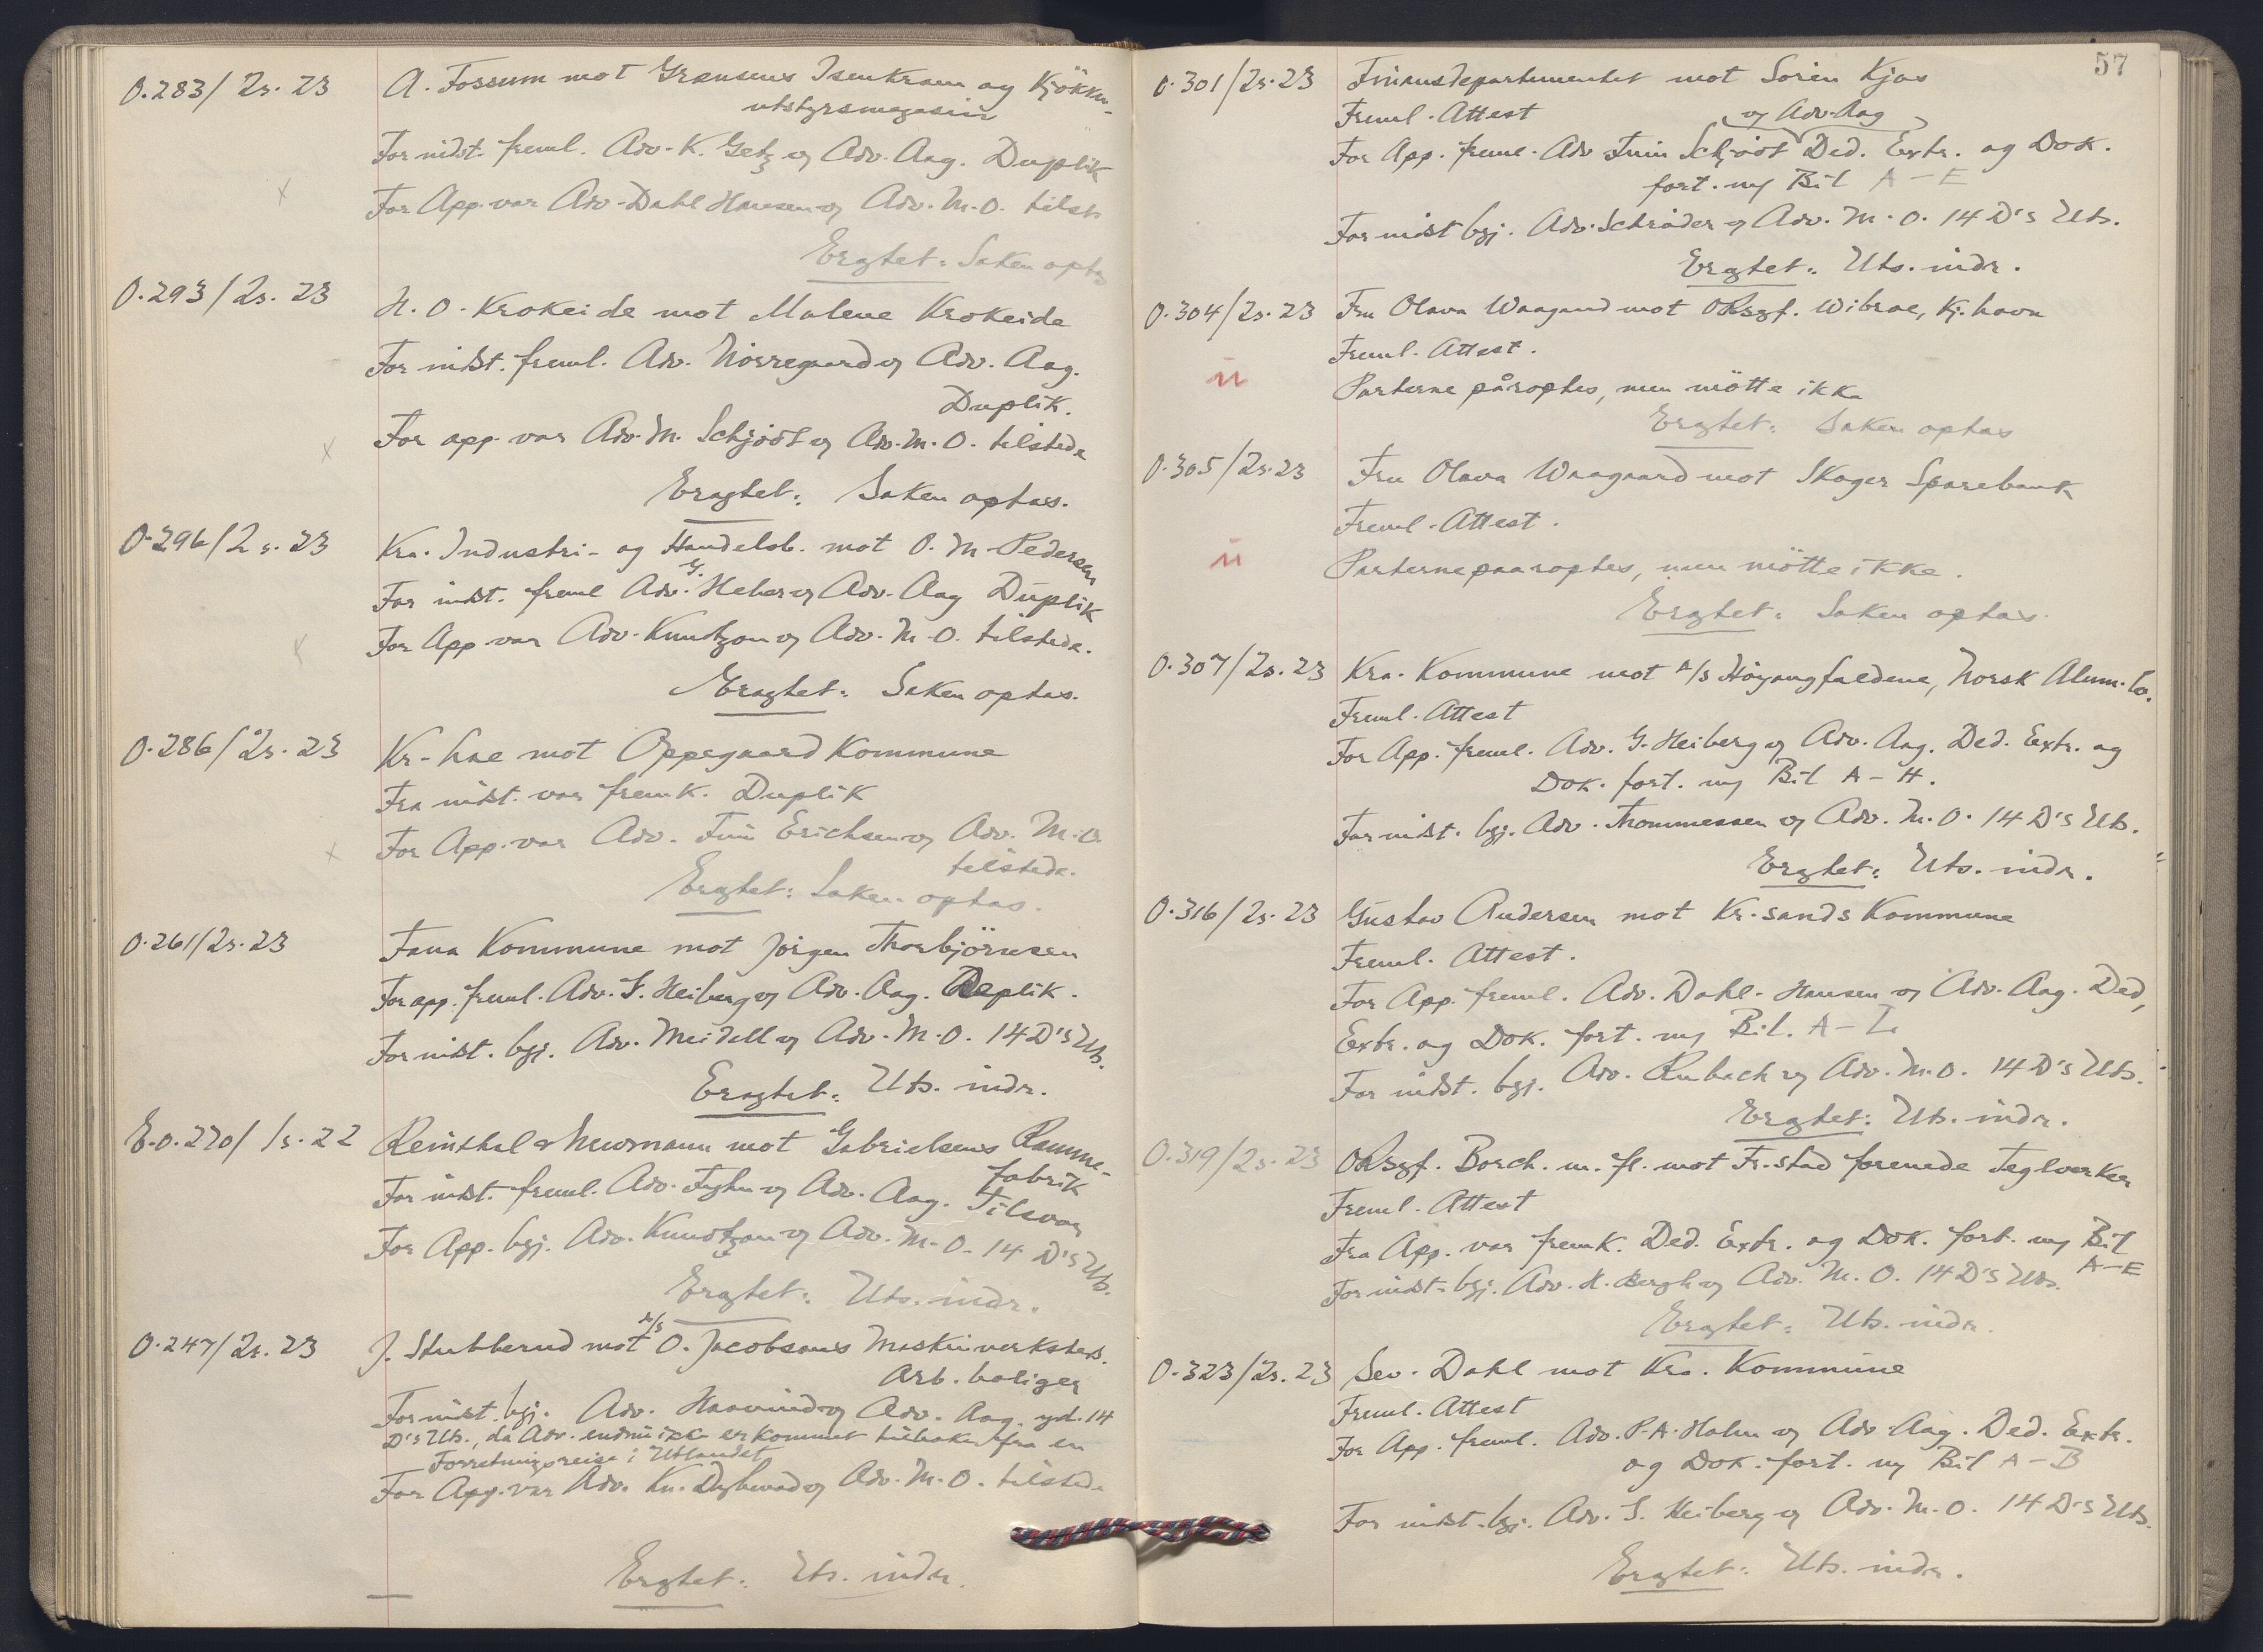 O.283/2s.23 A. Fossum mot Grænsens Isenkram og Kjøkken-
utstyrsmagasin
For indst. freml. Adv. K. Getz og Adv. Aag. Duplik
x For App. var Adv. Dahl Hansen og Adv. M.O. tilst.
Eragtet: Saken optas
O.293/2s.23 H. O. Krokeide mot Malene Krokeide
For indst. freml. Adv. Nörregaard og Adv. Aag.
Duplik.
x For app. var Adv. M. Schjödt og Adv. M.O. tilstede
Eragtet: Saken optas.
O.296/2s.23 Kra. Industri- og Handelsb. mot O. M. Pedersen
For indst. freml Adv. G. Heber og Adv. Aag Duplik
x For App var Adv. Knudtzon og Adv. M.O. tilstede.
Eragtet: Saken optas.
O.286/2s.23 Kr. hae mot Oppegaard Kommune
Fra indst. var fremk. Duplik
x For App. var Adv. Finn Erichsen og Adv. M.O.
tilstede.
Eragtet: Saken optas.
O.261/2s.23 Fana Kommune mot Jörgen Thorbjörnsen
For app. freml. Adv. S. Heiberg og Adv. Aag. Replik.
For indst. bgj. Adv. Meidell og Adv. M.O. 14 D's Uts.
Eragtet: Uts. indr.
E.O.270/1s.22 Reinthal & Newmann mot Gabrielsens Ramme-
fabrik
For indst. freml. Adv. Fyhn og Adv. Aag. Tilsvar
For App. bgj. Adv. Knudtzon og Adv. M.O. 14 D's Uts.
Eragtet: Uts. indr.
O.247/2s.23 J. Stubberud mot A/S O. Jacobsens Maskinverksteds.
Arb. boliger
For indst. bgj. Adv. Haavind og Adv. Aag. yd. 14
D's Uts., da Adv. endnu ikke er kommet tilbake fra en
Forretningsreise i Utlandet
For App. var Adv. Kn. Dybwad og Adv. M.O. tilstede
Eragtet: Uts. indr.
57
O.301/2s.23 Finansdepartementet mot Sören Kjær
Freml. Attest
og Adv. Aag
For App. freml. Adv Finn Schjödt Ded. Extr. og Dok.
fort. og Bil A-E
For indst bgj. Adv. Schröder og Adv. M.O. 14 D's Uts.
Eragtet: Uts. indr.
O.304/2s.23 Fru Olava Waagaard mot ORsgf. Wibrae, Kj.havn
Freml. Attest.
ü Parterne påroptes, men mötte ikke
Eragtet: Saken optas
O.305/2s.23 Fru Olava Waagaard mot Skoger Sparebank
Freml. Attest.
ü Parterne paaroptes, men mötte ikke.
Eragtet: Saken optas.
O.307/2s.23 Kra. Kommune mot A/S Höyangfaldene, Norsk Alum. Co.
Freml. Attest
For App. freml. Adv. G. Heiberg og Adv. Aag. Ded. Extr. og
Dok. fort. og Bil A-H.
For indst. bgj. Adv. Thommessen og Adv. M.O. 14 D's Uts.
Eragtet: Uts. indr.
O.316/2s.23 Gustav Andersen mot Kr.sands Kommune
Freml. Attest.
For App. freml. Adv. Dahl-Hansen og Adv. Aag. Ded,
Extr. og Dok. fort. og Bil. A-L
For indst. bgj. Adv. Rubach og Adv. M.O. 14 D's Uts.
Eragtet: Uts. indr.
O.319/2s.23 ORsgf. Borch. m. fl. mot Fr.stad forenede Teglverker
Freml. Attest
Fra App. var fremk. Ded. Extr. og Dok. fort. og Bil
A-E
For indst. bgj. Adv. H. Bergh og Adv. M.O. 14 D's Uts.
Eragtet: Uts. indr.
O.323/2s.23 Sev. Dahl mot Kra. Kommune
Freml. Attest
For App. freml. Adv. P.A. Holm og Adv Aag. Ded. Extr.
og Dok. fort. og Bil A-B
For indst. bgj. Adv. S. Heiberg og Adv. M.O. 14 D's Uts.
Eragtet: Uts. indr.